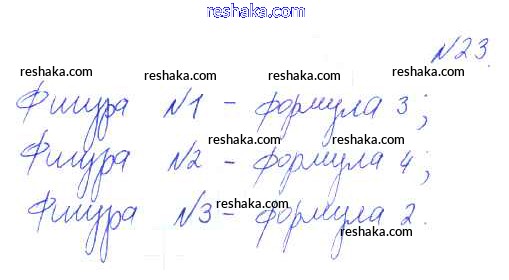 reshaka.com
№23.
reshaka.com reshaka.com reshaka.com
Фигура №1 - формула 3;
reshaka.com reshaka.com
Фигура №2 - формула 4;
reshaka.com reshaka.com reshaka.com
Фигура №3 - формула 2.
reshaka.com reshaka.com